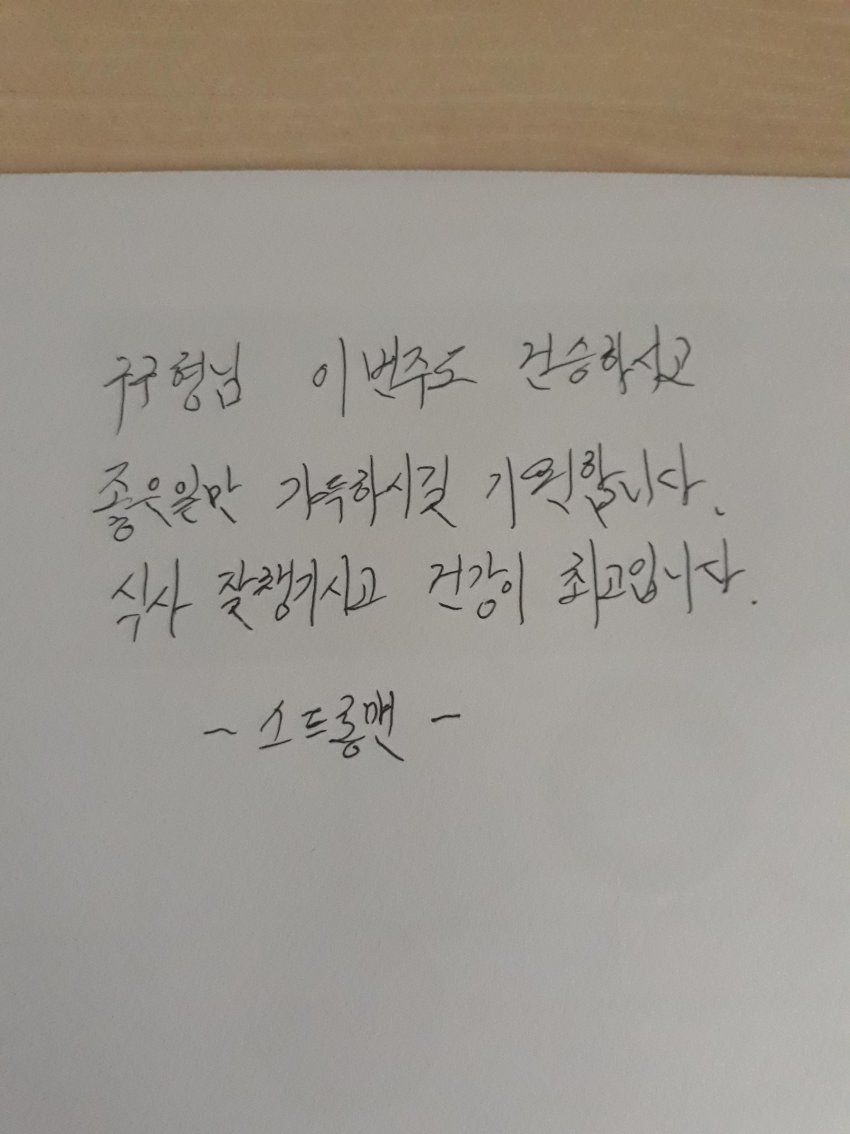 구구형님 이번주도 건승하시고
좋은일만 가득하시길 기원합니다.
식사 잘챙기시고 건강이 최고입니다.
- 스트롱맨 -